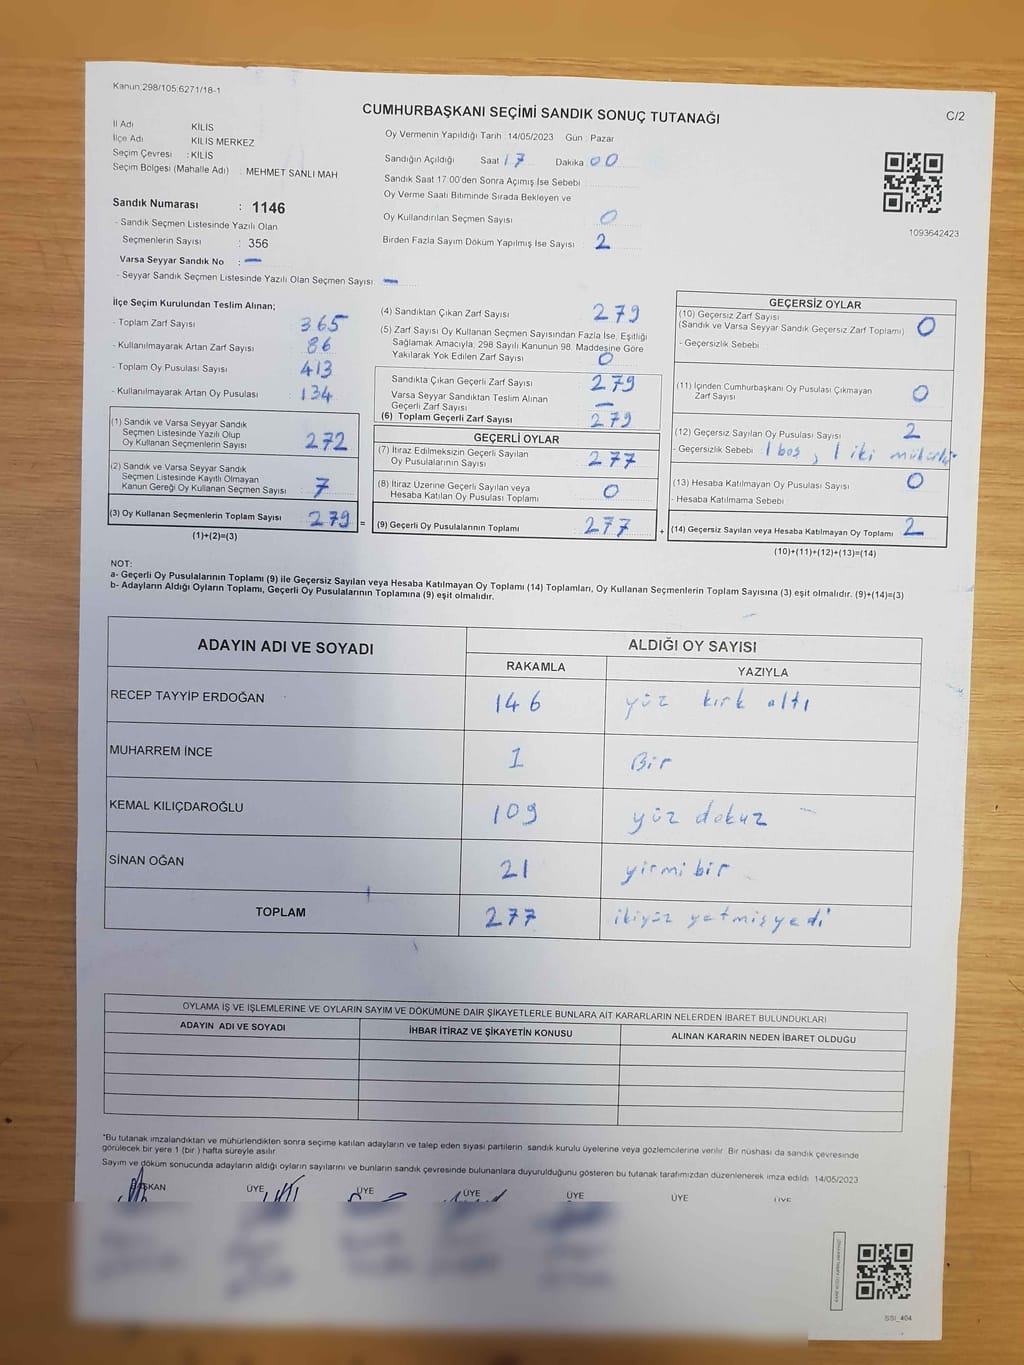 Kanun:298/105;6271/18-1
CUMHURBAŞKANI SEÇİMİ SANDIK SONUÇ TUTANAĞI
C/2
İl Adı KİLİS
İlçe Adı KİLİS MERKEZ
Seçim Çevresi : KİLİS
Seçim Bölgesi (Mahalle Adı) : MEHMET SANLI MAH
Oy Vermenin Yapıldığı Tarih 14/05/2023 Gün : Pazar
Sandığın Açıldığı Saat 17 Dakika 00
Sandık Saat 17:00'den Sonra Açımış İse Sebebi
Oy Verme Saati Bitiminde Sırada Bekleyen ve
Oy Kullandırılan Seçmen Sayısı 0
Birden Fazla Sayım Döküm Yapılmış İse Sayısı 2
1093642423
Sandık Numarası : 1146
- Sandık Seçmen Listesinde Yazılı Olan
Seçmenlerin Sayısı : 356
Varsa Seyyar Sandık No : –
- Seyyar Sandık Seçmen Listesinde Yazılı Olan Seçmen Sayısı: –
İlçe Seçim Kurulundan Teslim Alınan;
- Toplam Zarf Sayısı 365
- Kullanılmayarak Artan Zarf Sayısı 86
- Toplam Oy Pusulası Sayısı 413
- Kullanılmayarak Artan Oy Pusulası 134
(1) Sandık ve Varsa Seyyar Sandık
Seçmen Listesinde Yazılı Olup
Oy Kullanan Seçmenlerin Sayısı 272
(2) Sandık ve Varsa Seyyar Sandık
Seçmen Listesinde Kayıtlı Olmayan
Kanun Gereği Oy Kullanan Seçmen Sayısı 7
(3) Oy Kullanan Seçmenlerin Toplam Sayısı 279 =
(1)+(2)=(3)
(4) Sandıktan Çıkan Zarf Sayısı 279
(5) Zarf Sayısı Oy Kullanan Seçmen Sayısından Fazla İse, Eşitliği
Sağlamak Amacıyla; 298 Sayılı Kanunun 98. Maddesine Göre
Yakılarak Yok Edilen Zarf Sayısı 0
Sandıkta Çıkan Geçerli Zarf Sayısı 279
Varsa Seyyar Sandıktan Teslim Alınan
Geçerli Zarf Sayısı –
(6) Toplam Geçerli Zarf Sayısı 279
GEÇERLİ OYLAR
(7) İtiraz Edilmeksizin Geçerli Sayılan
Oy Pusulalarının Sayısı 277
(8) İtiraz Üzerine Geçerli Sayılan veya
Hesaba Katılan Oy Pusulası Toplamı 0
(9) Geçerli Oy Pusulalarının Toplamı 277 +
GEÇERSİZ OYLAR
(10) Geçersiz Zarf Sayısı
(Sandık ve Varsa Seyyar Sandık Geçersiz Zarf Toplamı) 0
- Geçersizlik Sebebi
(11) İçinden Cumhurbaşkanı Oy Pusulası Çıkmayan
Zarf Sayısı 0
(12) Geçersiz Sayılan Oy Pusulası Sayısı 2
- Geçersizlik Sebebi 1 boş, 1 iki
(13) Hesaba Katılmayan Oy Pusulası Sayısı 0
- Hesaba Katılmama Sebebi
(14) Geçersiz Sayılan veya Hesaba Katılmayan Oy Toplamı 2
(10)+(11)+(12)+(13)=(14)
NOT:
a- Geçerli Oy Pusulalarının Toplamı (9) ile Geçersiz Sayılan veya Hesaba Katılmayan Oy Toplamı (14) Toplamları, Oy Kullanan Seçmenlerin Toplam Sayısına (3) eşit olmalıdır. (9)+(14)=(3)
b- Adayların Aldığı Oyların Toplamı, Geçerli Oy Pusulalarının Toplamına (9) eşit olmalıdır.
ADAYIN ADI VE SOYADI
ALDIĞI OY SAYISI
RAKAMLA YAZIYLA
RECEP TAYYİP ERDOĞAN 146 yüz kırk altı
MUHARREM İNCE 1 Bir
KEMAL KILIÇDAROĞLU 109 yüz dokuz
SİNAN OĞAN 21 yirmi bir
TOPLAM 277 ikiyüz yetmişyedi
OYLAMA İŞ VE İŞLEMLERİNE VE OYLARIN SAYIM VE DÖKÜMÜNE DAİR ŞİKAYETLERLE BUNLARA AİT KARARLARIN NELERDEN İBARET BULUNDUKLARI
ADAYIN ADI VE SOYADI İHBAR İTİRAZ VE ŞİKAYETİN KONUSU ALINAN KARARIN NEDEN İBARET OLDUĞU
*Bu tutanak imzalandıktan ve mühürlendikten sonra seçime katılan adayların ve talep eden siyasi partilerin sandık kurulu üyelerine veya gözlemcilerine verilir. Bir nüshası da sandık çevresinde
görülecek bir yere 1 (bir ) hafta süreyle asılır.
Sayım ve döküm sonucunda adayların aldığı oyların sayılarını ve bunların sandık çevresinde bulunanlara duyurulduğunu gösteren bu tutanak tarafımızdan düzenlenerek imza edildi 14/05/2023
BAŞKAN ÜYE ÜYE ÜYE ÜYE ÜYE ÜYE
SSI_404